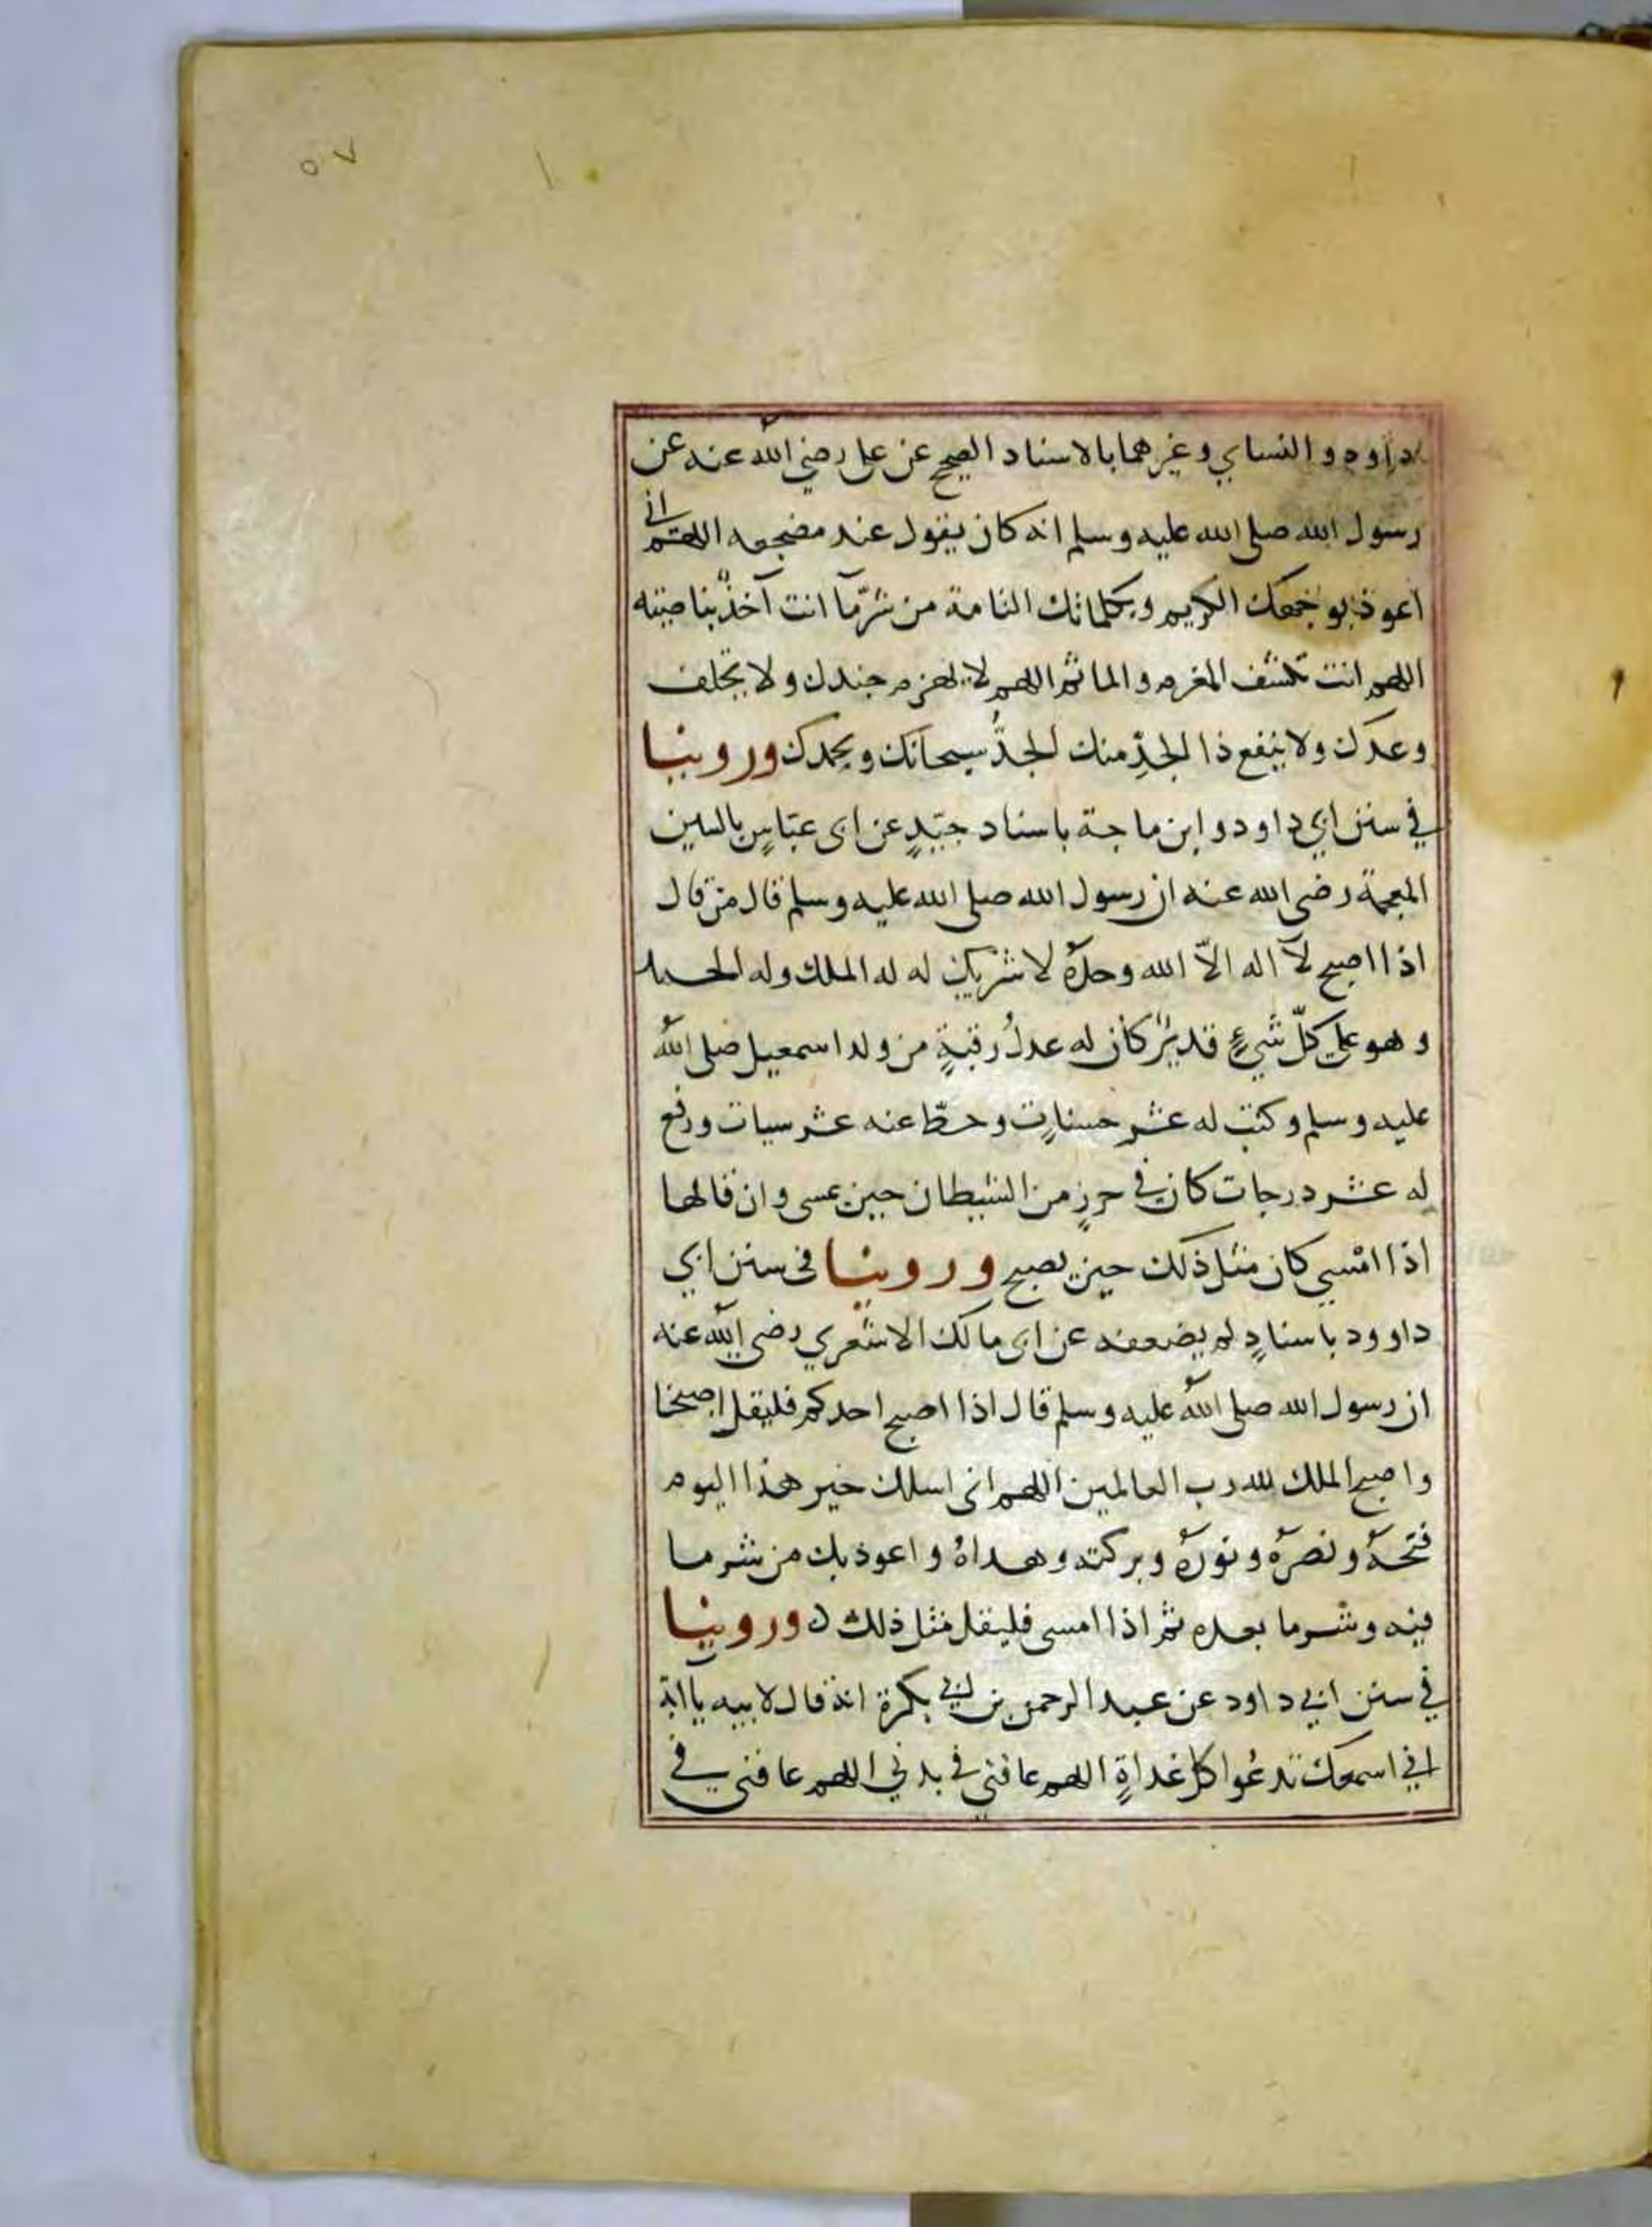 ٥٧
داود والنساي وغيرهما بالاسناد الصحيح عن علي رضي الله عنه عن
رسول الله صلى الله عليه وسلم انه كان يقول عند مضجعه اللهم اني
اعوذ بوجهك الكريم وبكلماتك التامة من شرّ ما انت آخذٌ بناصيته
اللهم انت تكشف المغرم والماثم اللهم لا يهزم جندك ولا يخلف
وعدك ولا ينفع ذا الجدِّ منك الجدُّ سبحانك وبحمدك وروينا
في سنن ابي داود وابن ماجة باسناد جيّدٍ عن ابى عيّاشٍ بالشين
المعجمة رضى الله عنه ان رسول الله صلى الله عليه وسلم قال من قال
اذا اصبح لآ اله الاّ الله وحدهُ لا شريك له له الملك وله الحمد
وهو على كلّ شيءٍ قديرٌ كان له عدلُ رقبةٍ من ولد اسمعيل صلى الله
عليه وسلم وكتب له عشر حسناتٍ وحطّ عنه عشر سيات ورفع
له عشر درجات كان في حرزٍ من الشيطان حين يمسى وان قالها
اذا امْسي كان مثل ذلك حين يصبح وروينا فى سنن ابي
داوود باسنادٍ لم يضعفه عن ابى مالك الاشعري رضى الله عنه
ان رسول الله صلى الله عليه وسلم قال اذا اصبح احدكم فليقل اصبحنا
واصبح الملك لله رب العالمين اللهم انى اسلك خير هذا اليوم
فتحهُ ونصرهُ ونورهُ وبركته وهداهُ واعوذ بك من شر ما
فيه وشر ما بعده ثم اذا امسى فليقل مثل ذلك ٥ وروينا
في سنن ابي داود عن عبد الرحمن بن ابي بكرة انه قال لابيه يآ ابة
اني اسمعك تدعُوا كل غداةٍ اللهم عافني في بدني اللهم عافنى في